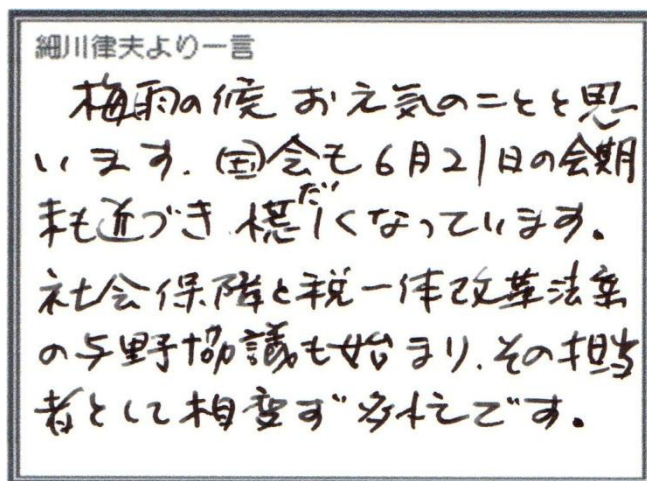 細川律夫より一言
梅雨の候 お元気のことと思
います. 国会も6月21日の会期
末も近づき 慌だしくなっています。
社会保障と税一体改革法案
の与野協議も始まり、その担当
者として相変ず多忙です。